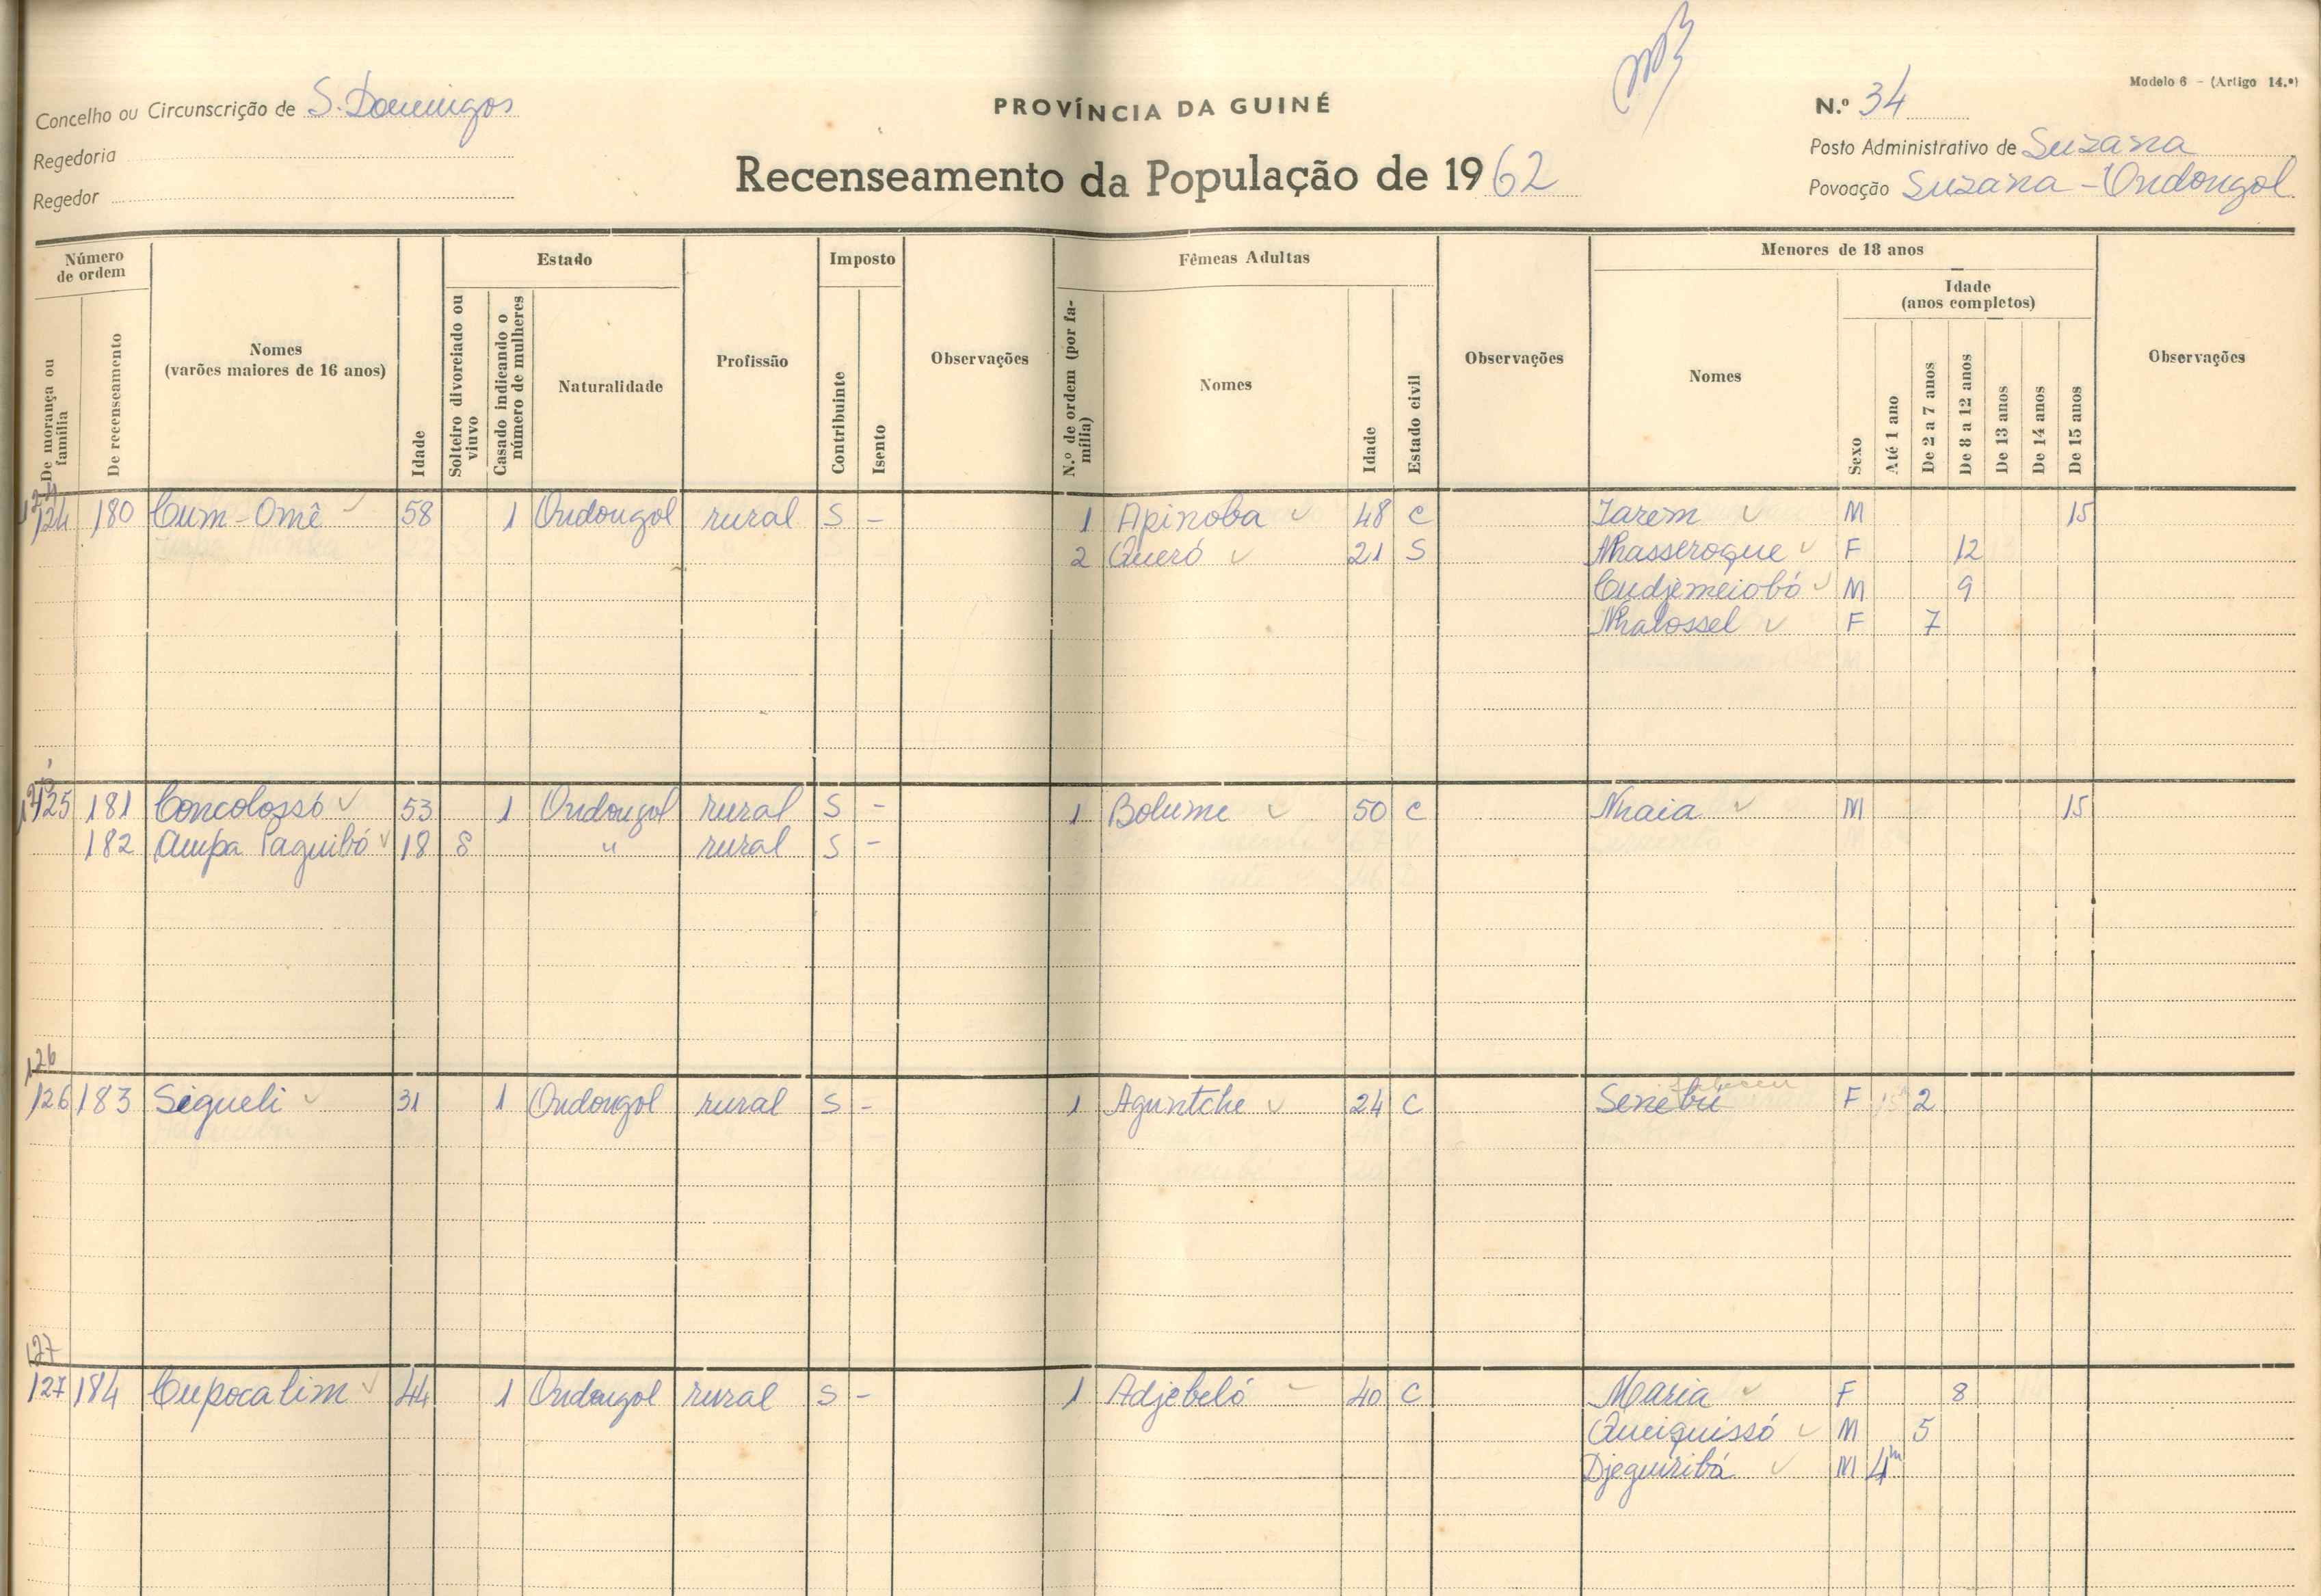 Modelo 6 - (Artigo 14.º)
Concelho ou Circunscrição de S. Domingos
PROVÍNCIA DA GUINÉ
N.º 34
Regedoria
Posto Administrativo de Suzana
Regedor
Recenseamento da População de 1962
Povoação Suzana - Ondongol
Número de ordem
De morança ou família
De recenseamento
Nomes (varões maiores de 16 anos)
Idade
Estado
Solteiro divorciado ou viuvo
Casado indicando o número de mulheres
Naturalidade
Profissão
Imposto
Contribuinte
Isento
Observações
Fêmeas Adultas
N.º de ordem (por família)
Nomes
Idade
Estado civil
Observações
Menores de 18 anos
Nomes
Sexo
Idade (anos completos)
Até 1 ano
De 2 a 7 anos
De 8 a 12 anos
De 13 anos
De 14 anos
De 15 anos
Observações
124 180 Cum-Omê 58 1 Ondongol rural S - 1 Apinoba 48 C Jarem M 15
2 Queró 21 S Nhasseroque F 12
Cudjemeiobó M 9
Nhalossel F 7
125 181 Concolossó 53 1 Ondongol rural S - 1 Bolume 50 C Nhaia M 15
182 Ampa Paguibó 18 S " rural S -
126
126 183 Sigueli 31 1 Ondongol rural S - 1 Aguntche 24 C Senebú F 2
127
127 184 Cupocalim 44 1 Ondongol rural S - 1 Adjebeló 40 C Maria F 8
Queiquissó M 5
Djeguiribá M 4m